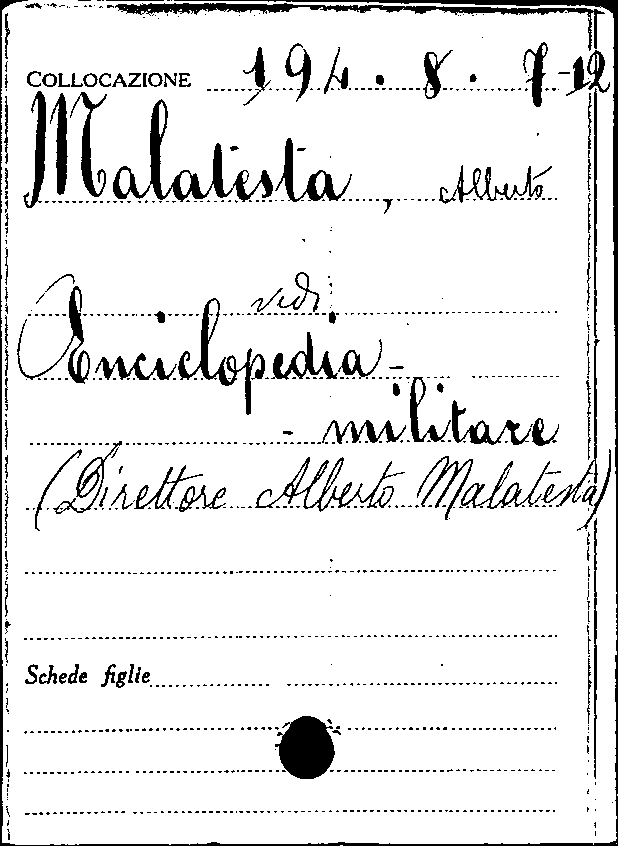 COLLOCAZIONE 194.8.7-12
Malatesta, Alberto
vedi
Enciclopedia-
- militare
(Direttore Alberto Malatesta)
Schede figlie